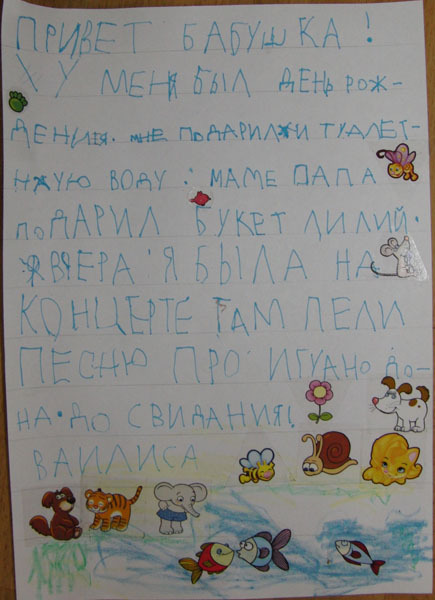 ПРИВЕТ БАБУШКА!
У МЕНЯ БЫЛ ДЕНЬ РОЖ-
ДЕНИЯ. МНЕ ПОДАРИЛИ ТУАЛЕТ-
НУЮ ВОДУ. МАМЕ ПАПА
ПОДАРИЛ БУКЕТ ЛИЛИЙ.
ВЧЕРА Я БЫЛА НА
КОНЦЕРТЕ ТАМ ПЕЛИ
ПЕСНЮ ПРО ИГУАНО ДО-
НА. ДО СВИДАНИЯ!
ВАИЛИСА